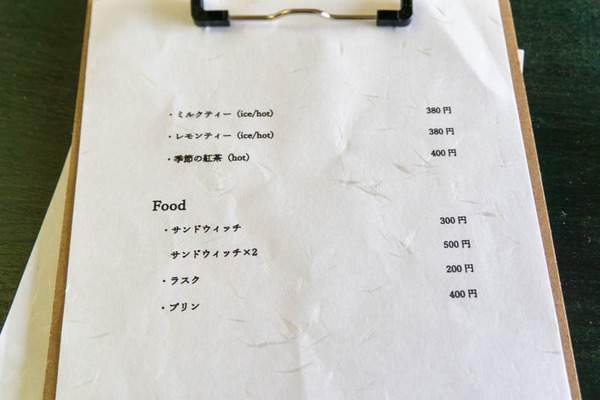 ・ミルクティー (ice/hot) 380 円
・レモンティー (ice/hot) 380 円
・季節の紅茶 (hot) 400 円
Food
・サンドウィッチ 300 円
サンドウィッチ×2 500 円
・ラスク 200 円
・プリン 400 円